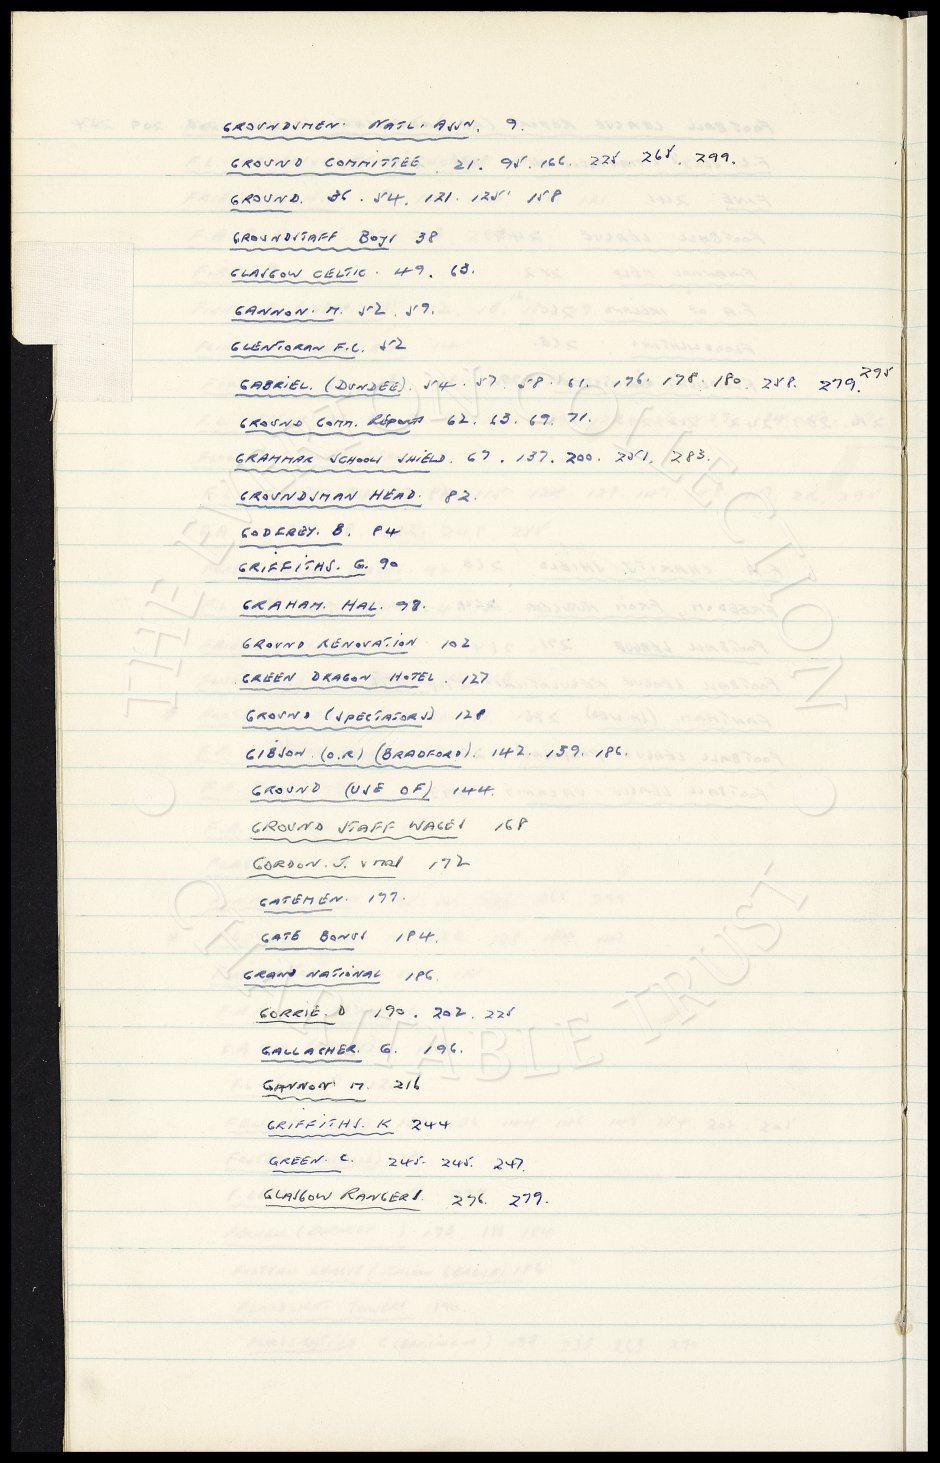 GROUNDSMEN. NATL. ASSN. 9.
GROUND COMMITTEE 21. 95. 166. 225 265. 299.
GROUND. 36. 54. 121. 125. 158
GROUNDSTAFF BOYS 38
GLASGOW CELTIC. 49. 63.
GANNON. M. 52. 59.
GLENTORAN F.C. 52
GABRIEL. (DUNDEE). 54. 57. 58. 61. 176. 178. 180. 258. 279. 295
GROUND COMM. REPORT 62. 63. 69. 71.
GRAMMAR SCHOOL SHIELD. 67. 137. 200. 251. 283.
GROUNDSMAN HEAD. 82.
GODFREY. B. 84
GRIFFITHS. G. 90
GRAHAM. HAL. 98.
GROUND RENOVATION 102
GREEN DRAGON HOTEL. 127
GROUND (SPECTATORS) 128
GIBSON. (O.R) (BRADFORD). 142. 159. 186.
GROUND (USE OF) 144.
GROUND STAFF WAGES 168
GORDON. J. & MRS 172
GATEMEN. 177.
GATE BONUS 184.
GRAND NATIONAL 186.
GORRIE. D 190. 202. 225
GALLAGHER. G. 196.
GANNON M. 216
GRIFFITHS. K 244
GREEN. C. 245. 245. 247.
GLASGOW RANGERS. 276. 279.
THE EVERTON COLLECTION
CHARITABLE TRUST